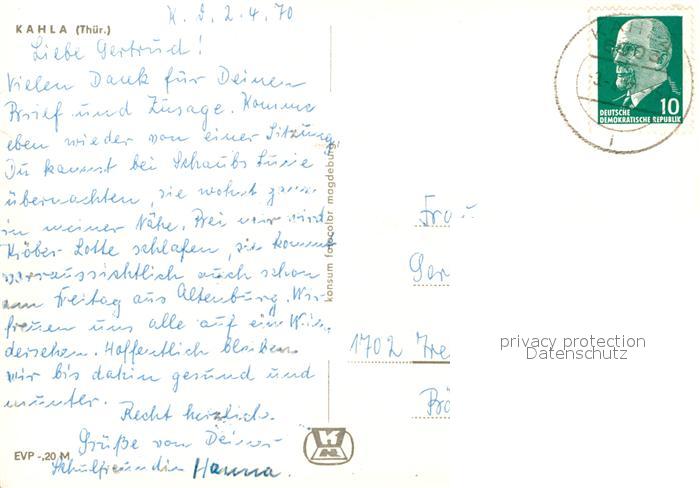 K. d. 2.4.70
KAHLA (Thür.)
Liebe Gertrud!
Vielen Dank für Deinen
Brief und Zusage. Komme
eben wieder von einer Sitzung.
Du kannst bei Schaubs Susie
übernachten, sie wohnt ganz
in meiner Nähe. Bei mir wird
Kröber Lotte schlafen, sie kommt
voraussichtlich auch schon
am Freitag aus Altenburg. Wir
freuen uns alle auf ein Wie-
dersehen. Hoffentlich bleiben
wir bis dahin gesund und
munter.
Recht herzliche
Grüße von Deiner
Schulfreundin Hanna.
EVP -,20 M
konsum fotocolor magdeburg
DEUTSCHE
DEMOKRATISCHE REPUBLIK
10
KAHLA
Frau
Ger
1702 Tre
Brö
privacy protection
Datenschutz